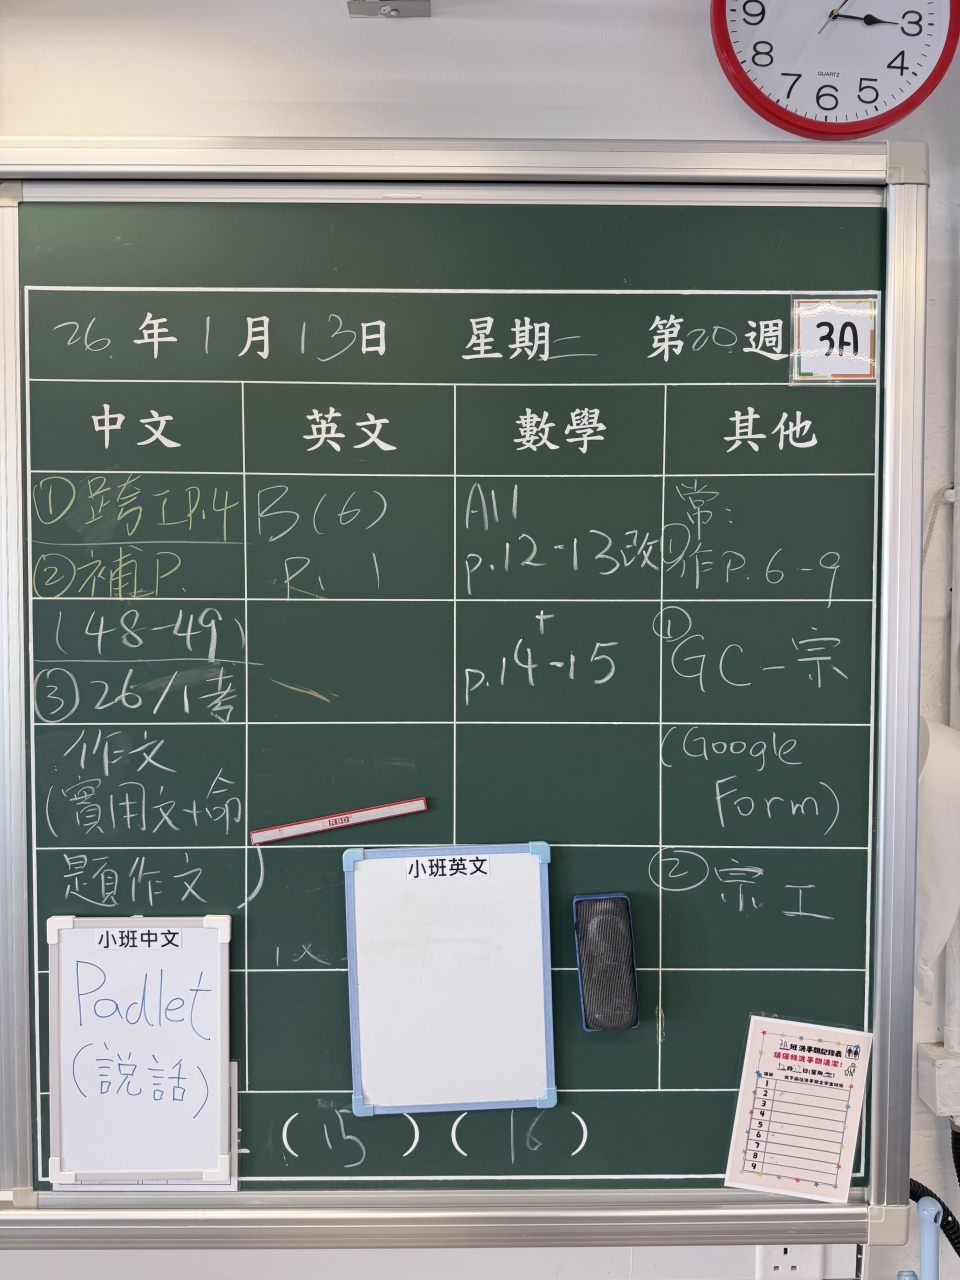 9 3
8 4
7 6 5
QUARTZ
26年1月13日 星期二 第20週 3A
中文 英文 數學 其他
①跨工P.4
②補P.
(48-49)
③26/1考
作文
(實用文+命
題作文)
B(6)
R. 1
All
p.12-13改
+
p.14-15
常:
①作P.6-9
①GC-宗
(Google
Form)
②宗工
RBD
小班中文
Padlet
(説話)
小班英文
(15) (16)
3A班洗手間記錄表
請保持洗手間清潔!
1
2
3
4
5
6
7
8
9